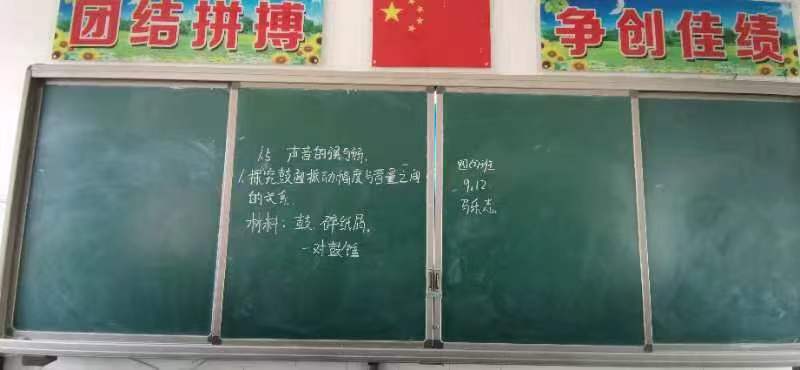 团结拼搏
争创佳绩
1.5 声音的强与弱.
1.探究鼓面振动幅度与音量之间
的关系.
材料：鼓 碎纸屑.
一对鼓锤
9.12